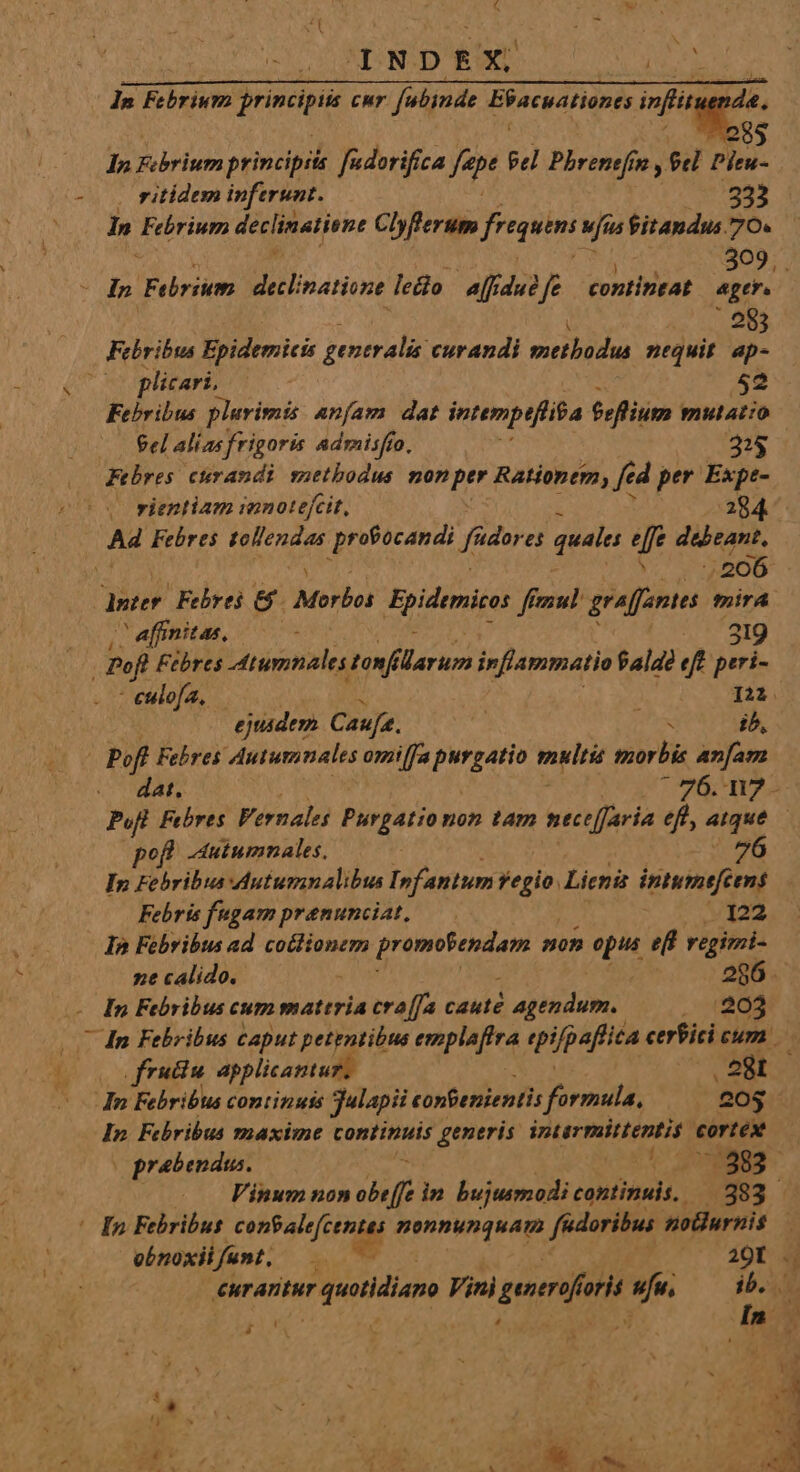 INDEX,
In Febrium principiis cur ſubinde Evacuationes inſtituendæ.
285
In Febrium principiis ſudorifica ſæpe vel Phreneſin, vel Pleu-
ritidem inferunt. 333
In Febrium declinatione Clyſterum frequens uſus vitandus. 70.
309.
In Febrium declinatione lecto aſſiduè ſe contineat ager.
283
Febribus Epidemicis generalis curandi methodus nequit ap-
plicari. 52
Febribus plurimis anſam dat intempeſtiva veſtium mutatio
vel alias frigoris admisſio. 325
Febres curandi methodus non per Rationem, ſed per Expe-
rientiam innoteſcit, 284
Ad Febres tollendas provocandi ſudores quales eſſe debeant.
206
Inter Febres & Morbos Epidemicos ſimul graſſantes mira
affinitas, 319
Poſt Febres Atumnales tonſillarum inflammatio valdè eſt peri-
culoſa, 122
ejusdem Cauſa. ib.
Poſt Febres Autumnales omiſſa purgatio multis morbis anſam
dat. 76. 117
Poſt Febres Vernales Purgatio non tam neceſſaria eſt, atque
poſt Autumnales. 76
In Febribus Autumnalibus Infantum regio Lienis intumeſcens
Febris fugam prænunciat. 122
In Febribus ad coctionem promovendam non opus eſt regimi-
ne calido. 286
In Febribus cum materia craſſa cautè agendum. 203
In Febribus caput petentibus emplaſtra epiſpaſtica cervici cum
fructu applicantur. 281
In Febribus continuis Julapii convenientis formula, 205
In Febribus maxime continuis generis intermittentis cortex
præbendus. 383
Vinum non obeſſe in hujusmodi continuis. 383
In Febribus convaleſcentes nonnunquam ſudoribus nocturnis
obnoxii ſunt. 291
curantur quotidiano Vini generoſioris uſu, ib.
In